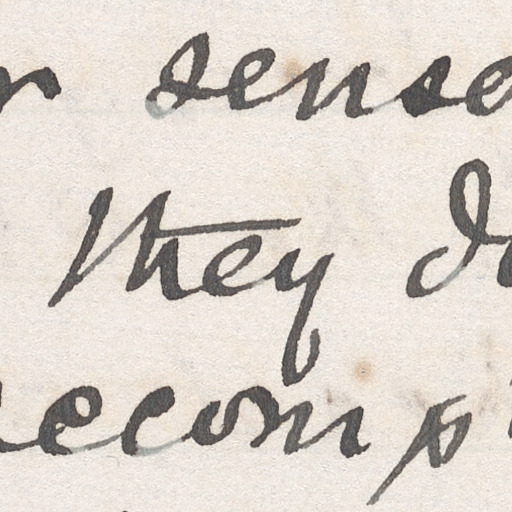 r sense
they do
accomp